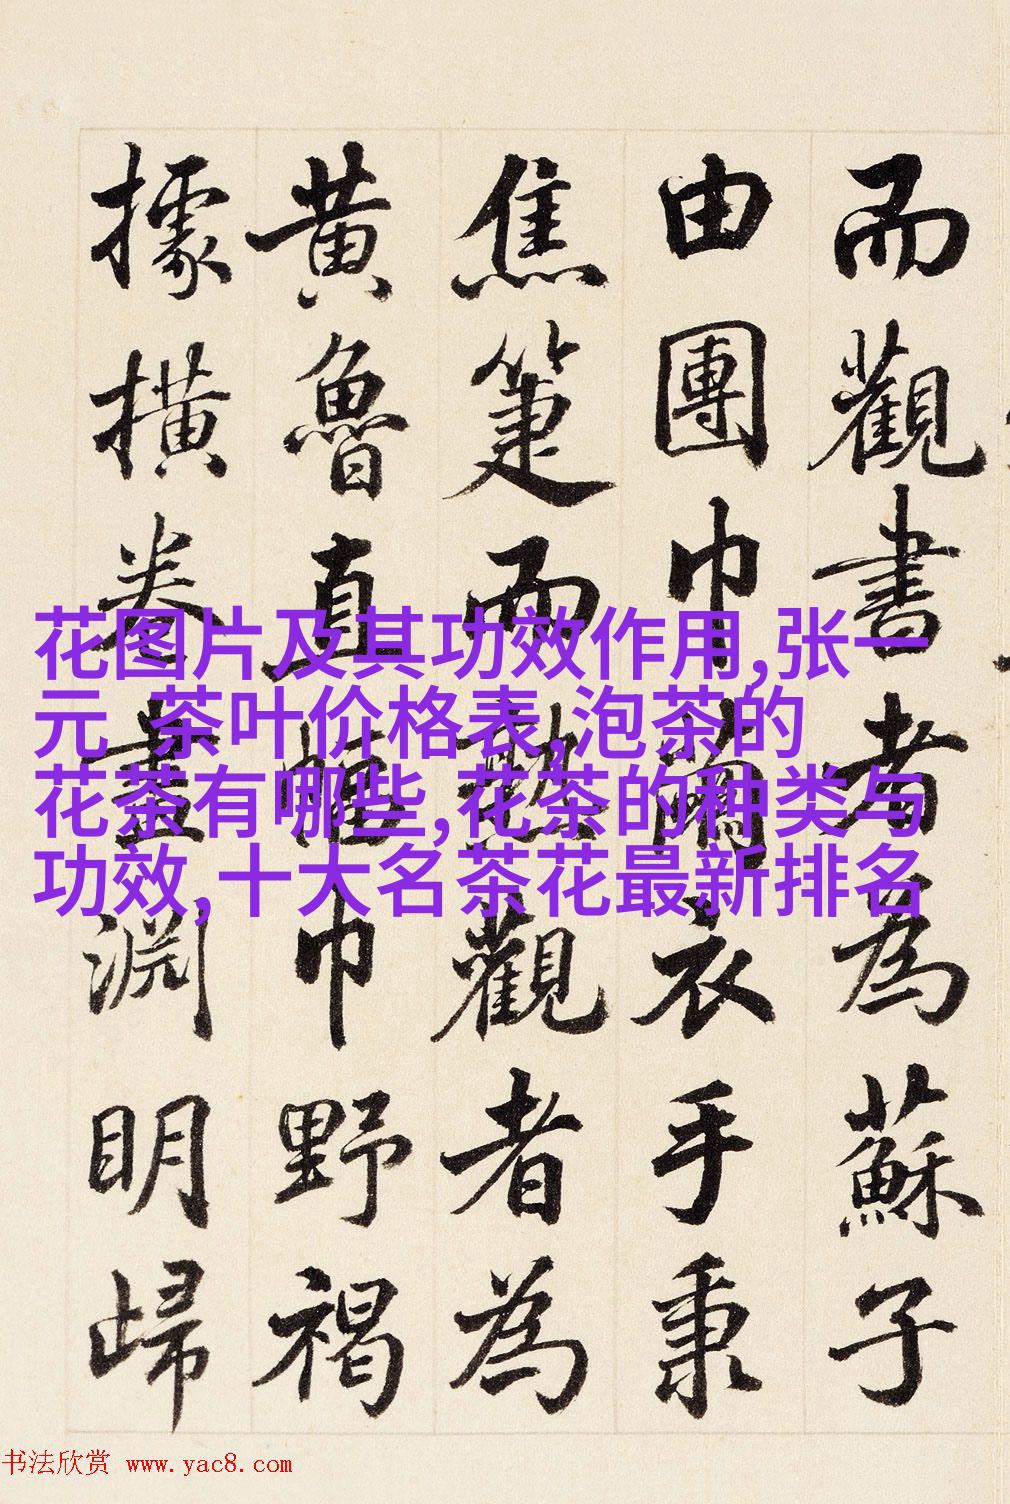 而觀書者為蘇子
由團巾繭衣手秉
焦箑而熟觀者為
黃魯直幅巾野褐
據橫卷畫淵明歸
花图片及其功效作用,张一
元 茶叶价格表,泡茶的
花茶有哪些,花茶的种类与
功效,十大名茶花最新排名
书法欣赏 www.yac8.com